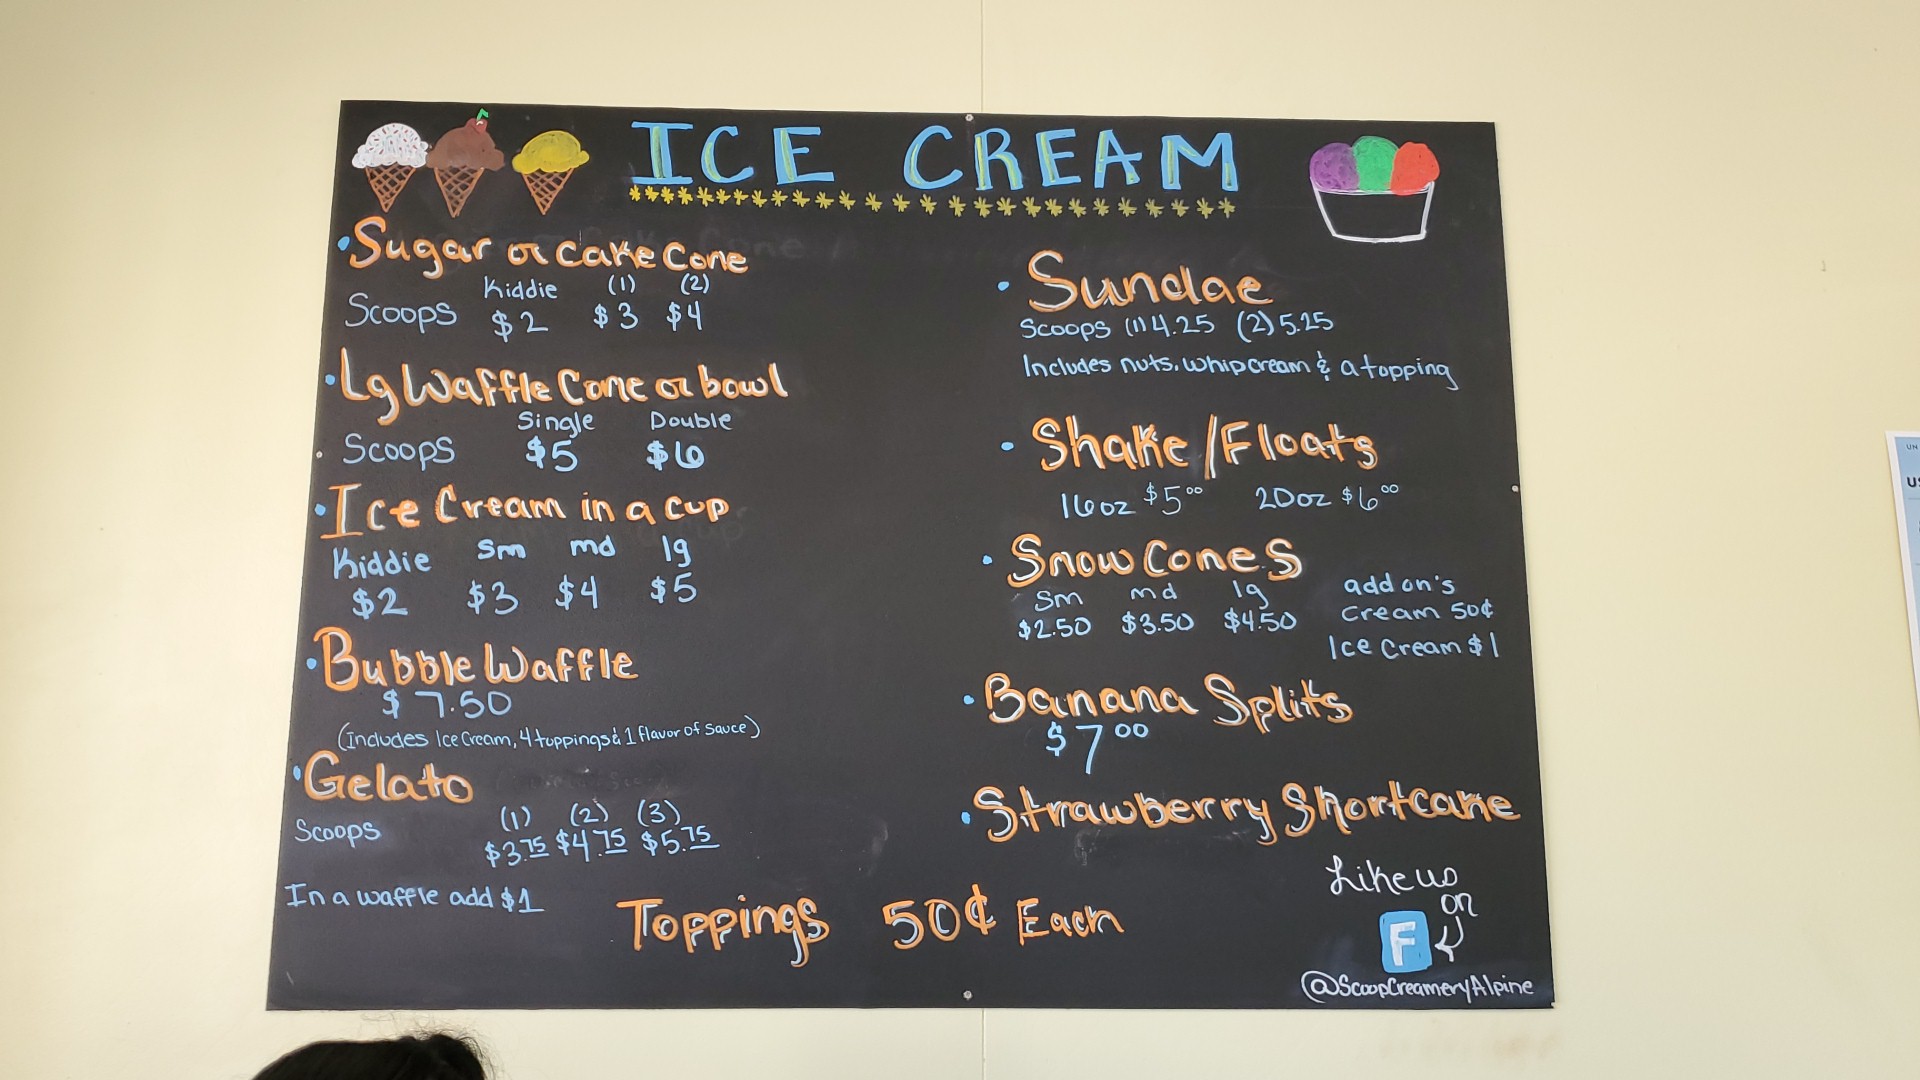 ICE CREAM
Sugar or cake cone
Kiddie (1) (2)
Scoops $2 $3 $4
Lg Waffle Cone or bowl
Single Double
Scoops $5 $6
Ice Cream in a cup
Kiddie sm md lg
$2 $3 $4 $5
Bubble Waffle
$7.50
(Includes Ice Cream, 4 toppings & 1 flavor of sauce)
Gelato
(1) (2) (3)
Scoops $3.75 $4.75 $5.75
In a waffle add $1
Sundae
Scoops (1) 4.25 (2) 5.25
Includes nuts, whip cream & a topping
Shake/Floats
16oz $5.00 20oz $6.00
Snow Cones
sm md lg
$2.50 $3.50 $4.50
add on's
cream 50¢
Ice Cream $1
Banana Splits
$7.00
Strawberry Shortcake
Toppings 50¢ Each
Like us
on
F
@ScoopCreameryAlpine
UN
US